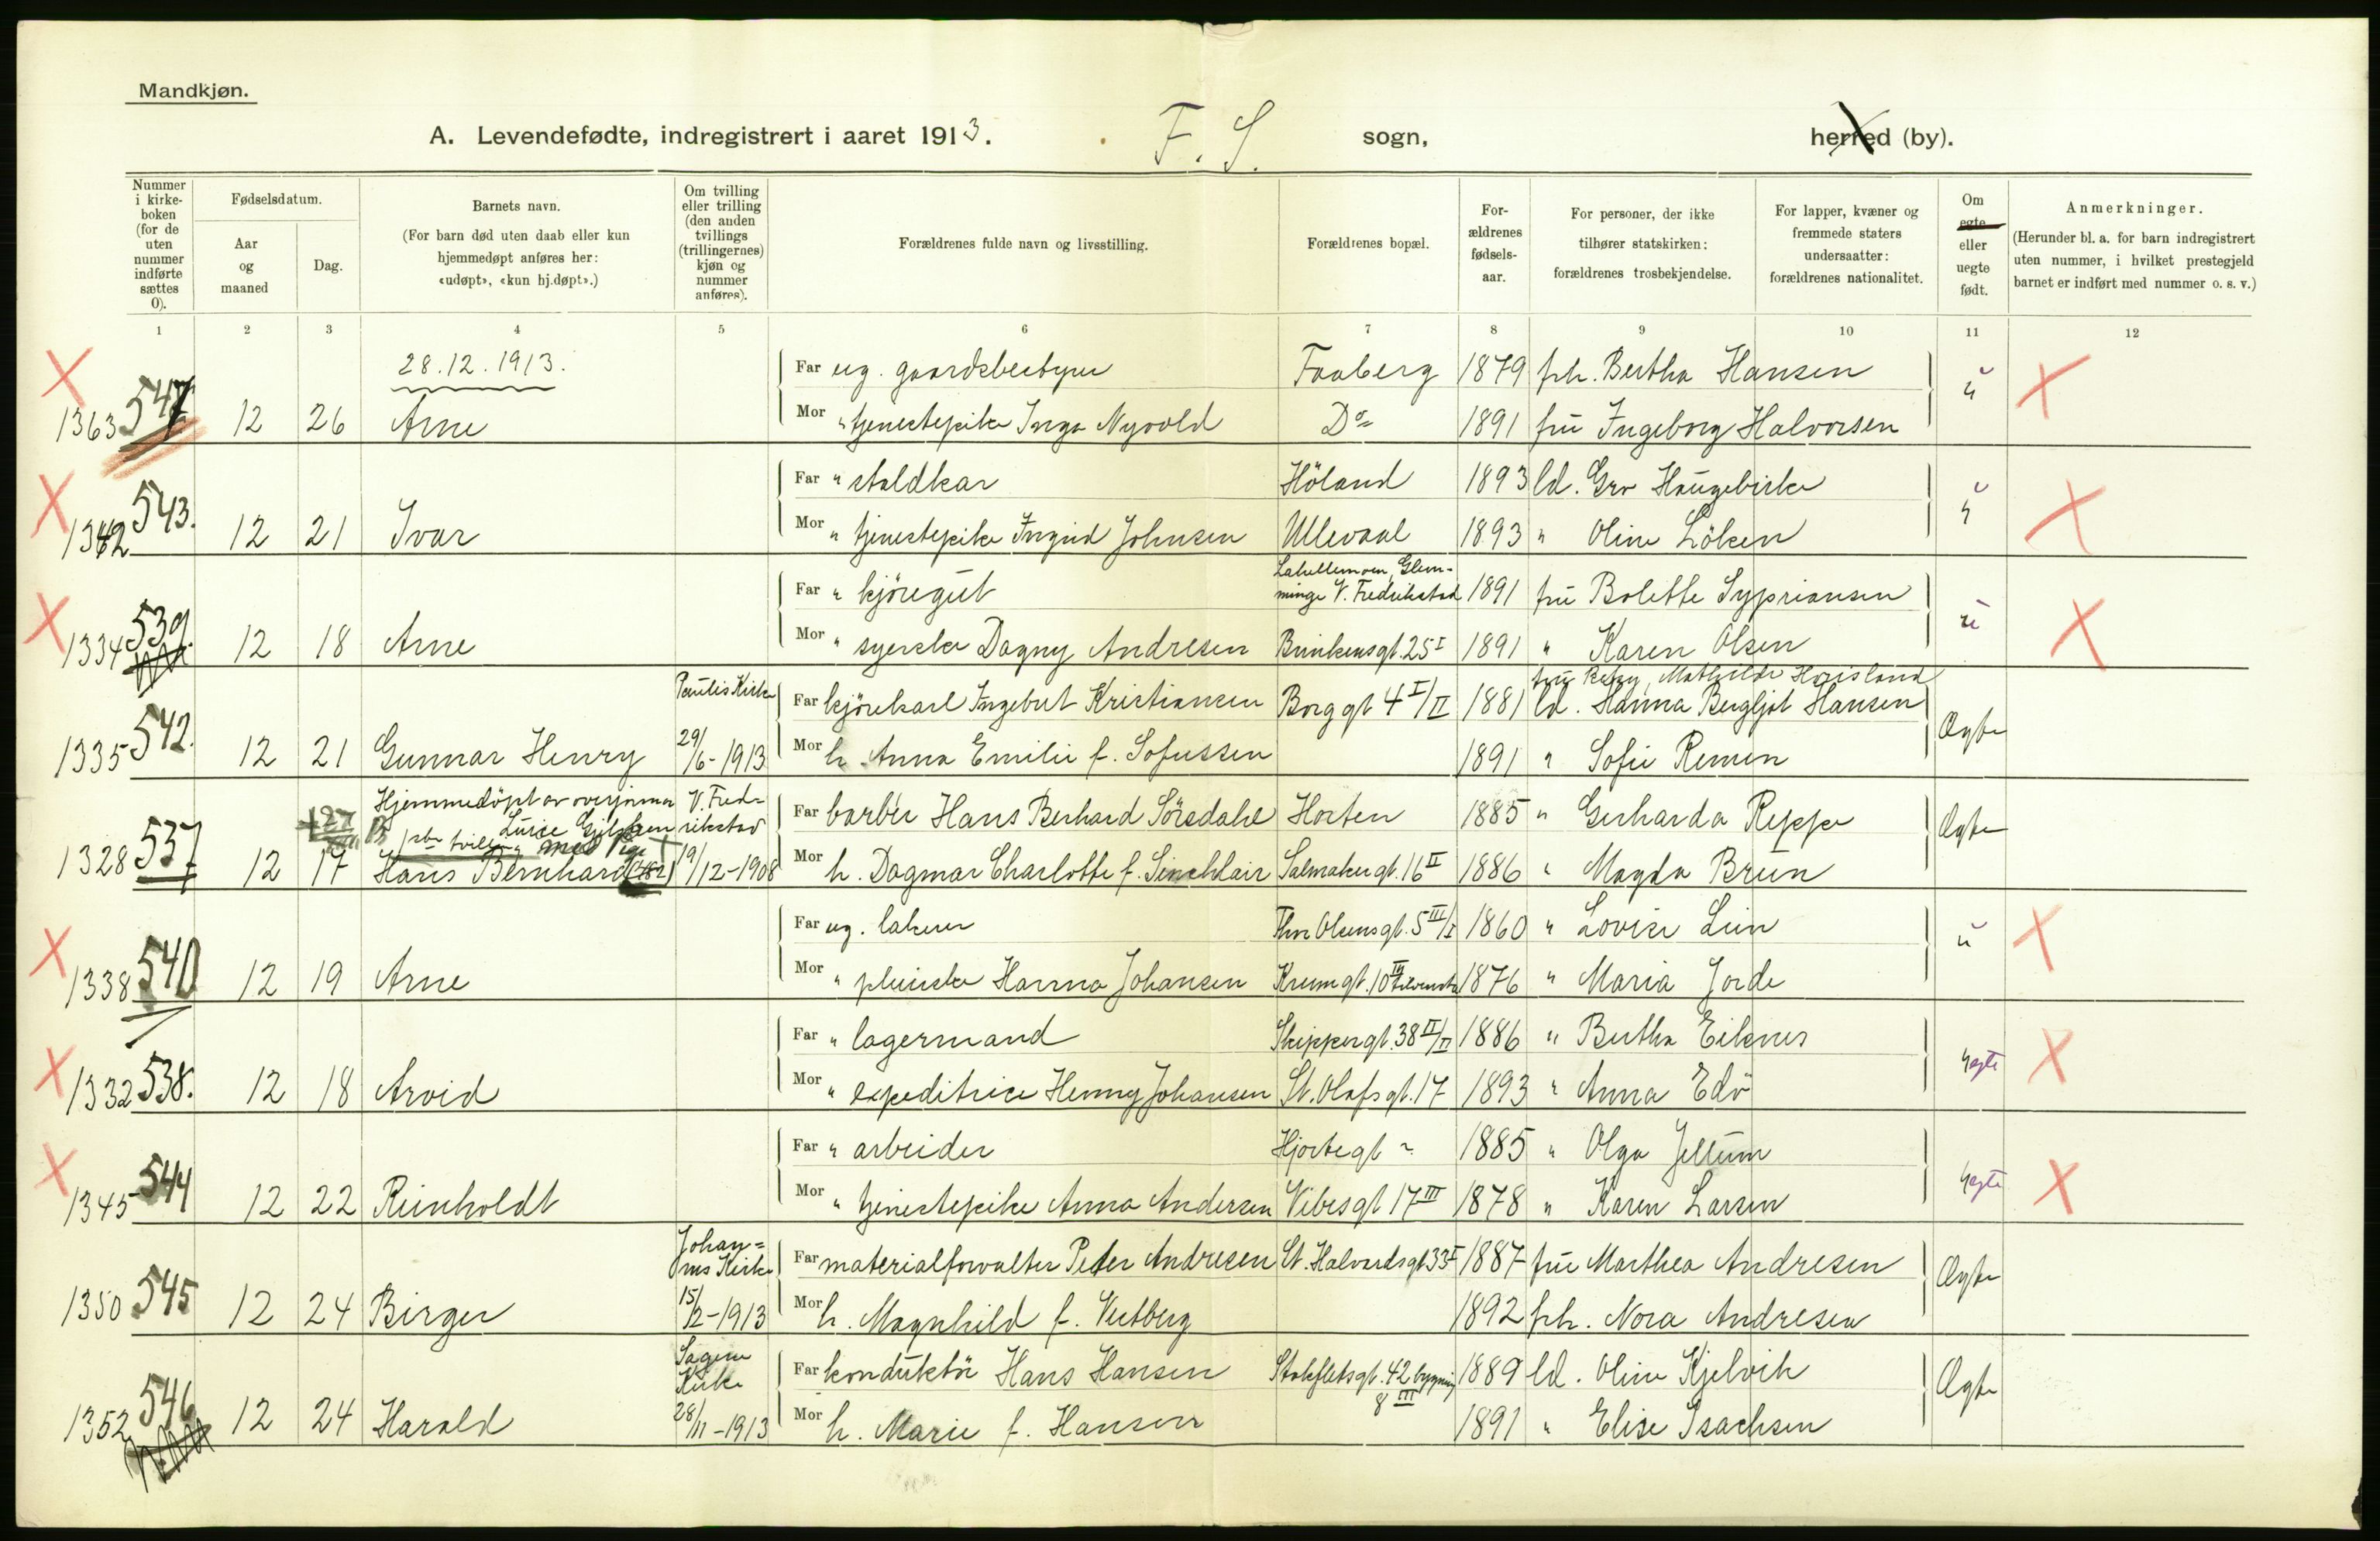 Mandkjøn.
A. Levendefødte, indregistrert i aaret 1913. F. S. sogn, herred (by).
Nummer i kirkeboken (for de uten nummer indførte sættes 0).
Fødselsdatum.
Aar og maaned
Dag.
Barnets navn.
(For barn død uten daab eller kun hjemmedøpt anføres her: «udøpt», «kun hj.døpt».)
Om tvilling eller trilling (den anden tvillings (trillingernes) kjøn og nummer anføres).
Forældrenes fulde navn og livsstilling.
Forældrenes bopæl.
Forældrenes fødselsaar.
For personer, der ikke tilhører statskirken: forældrenes trosbekjendelse.
For lapper, kvæner og fremmede staters undersaatter: forældrenes nationalitet.
Om egte eller uegte født.
Anmerkninger.
(Herunder bl. a. for barn indregistrert uten nummer, i hvilket prestegjeld barnet er indført med nummer o. s. v.)
1 2 3 4 5 6 7 8 9 10 11 12
28.12.1913.
Far ug. gaardsbestyrer Faaberg 1879 frk. Bertha Hansen
1363 547 12 26 Arne Mor " tjenestepike Inga Nyvold Do 1891 fru Ingeborg Halvorsen u
Far " staldkar Höland 1893 ld. Gro Haugebirke
1342 543. 12 21 Ivar Mor " tjenestepike Ingrid Johnsen Ullevaal 1893 " Oline Löken u
Far " kjöregut Glemminge V. Fredrikstad 1891 fru Bolette Sypriansen
1334 539. 12 18 Arne Mor " syerske Dagny Andresen Brinkensgt. 25 I 1891 " Karen Olsen u
Paulus Kirke fru Mathilde
Far kjörekarl Ingebret Kristiansen Borggt 4 I/II 1881 ld. Hanna Bergljot Hansen
1335 542. 12 21 Gunnar Henry 29/6-1913 Mor h. Anna Emilie f. Sofussen 1891 " Sofie Remen Ægte
Hjemmedöpt av V. Fredrikstad
Far barber Hans Berhard Sörsdahl Horten 1885 " Gerharda Reppe
1328 537 12 17 Hans Bernhard 19/12-1908 Mor h. Dagmar Charlotte f. Sinchlair Salmakergt. 16 II 1886 " Magda Brun Ægte
Far ug. lakerer Thv. Olsensgt. 5 III/I 1860 " Lovise Lein
1338 540 12 19 Arne Mor " pleierske Hanna Johansen Krumgt. 10 1876 " Maria Jorde u
Far " lagermand Skippergt. 38 II/II 1886 " Bertha Eiknes
1332 538. 12 18 Arvid Mor " expeditrice Henny Johansen St. Olafsgt. 17 1893 " Anna Edö uegte
Far " arbeider Hjortegt 1885 " Olga Jellum
1345 544 12 22 Reinholdt Mor " tjenestepike Anna Andersen Vibesgt 17 III 1878 " Karen Larsen uegte
Johannes Kirke
Far materialforvalter Peder Andresen St. Halvardsgt 33 I 1887 fru Marthea Andresen
1350 545 12 24 Birger 15/2-1913 Mor h. Magnhild f. Vestberg 1892 frk. Nora Andresen Ægte
Sagene Kirke
Far konduktör Hans Hansen Stokfletsgt. 42 bygning 8 III 1889 ld. Oline Kjelvik
1352 546 12 24 Harald 28/11-1913 Mor h. Marie f. Hansen 1891 " Elise Isachsen Ægte